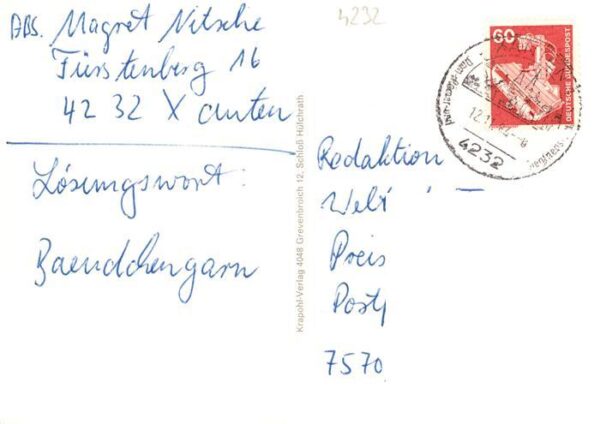 ABS. Magret Nitsche
Fürstenberg 16
4232 Xanten
Lösungswort:
Baendchengarn
Krapohl-Verlag 4048 Grevenbroich 12, Schloß Hülchrath
4232
60
DEUTSCHE BUNDESPOST
4232
Redaktion
Welt
Preis
Post
7570